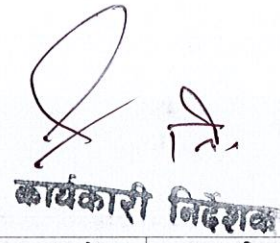 नि.
कार्यकारी निर्देशक